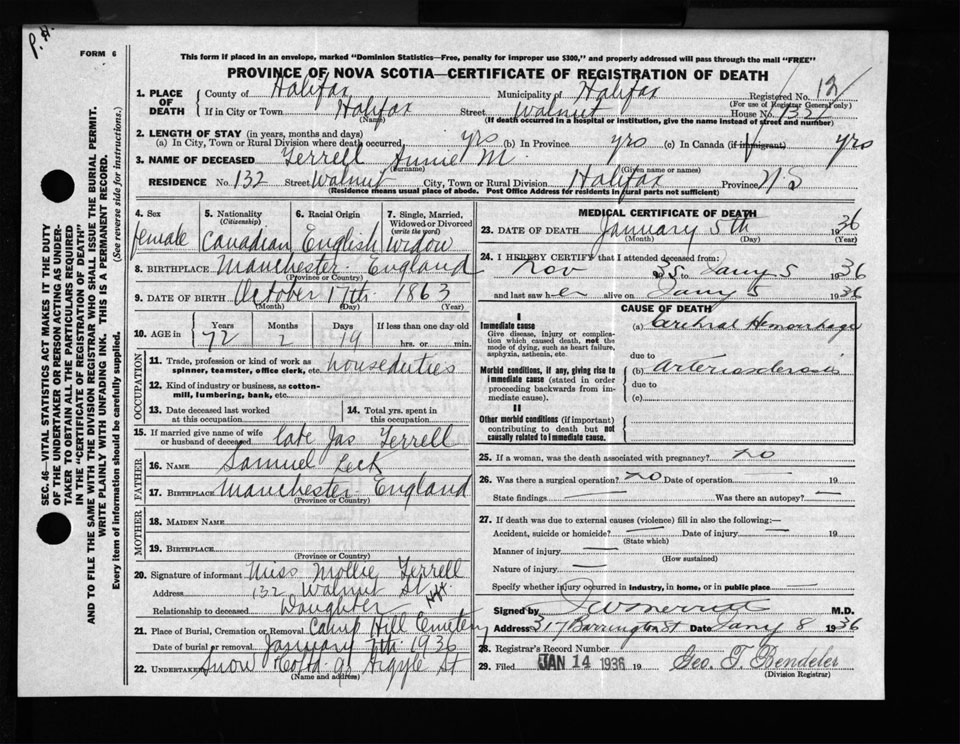 P.H.
FORM 6
This form if placed in an envelope, marked "Dominion Statistics—Free, penalty for improper use $300," and properly addressed will pass through the mail "FREE"
PROVINCE OF NOVA SCOTIA—CERTIFICATE OF REGISTRATION OF DEATH
SEC. 46—VITAL STATISTICS ACT MAKES IT THE DUTY
OF THE UNDERTAKER OR PERSON ACTING AS UNDER-
TAKER TO OBTAIN ALL THE PARTICULARS REQUIRED
IN THE "CERTIFICATE OF REGISTRATION OF DEATH"
AND TO FILE THE SAME WITH THE DIVISION REGISTRAR WHO SHALL ISSUE THE BURIAL PERMIT.
WRITE PLAINLY WITH UNFADING INK. THIS IS A PERMANENT RECORD.
Every item of information should be carefully supplied. (See reverse side for instructions.)
1. PLACE OF DEATH County of Halifax Municipality of Halifax Registered No. 12
(For use of Registrar General only)
If in City or Town Halifax Street Walnut House No. 132
(Name) (If death occurred in a hospital or institution, give the name instead of street and number)
2. LENGTH OF STAY (in years, months and days)
(a) In City, Town or Rural Division where death occurred yrs (b) In Province yrs (c) In Canada (if immigrant) yrs
3. NAME OF DECEASED Ferrell Annie M.
(Surname) (Given name or names)
RESIDENCE No. 132 Street Walnut City, Town or Rural Division Halifax Province N.S
(Residence means usual place of abode. Post Office Address for residents in rural parts not sufficient)
4. Sex female
5. Nationality (Citizenship) Canadian
6. Racial Origin English
7. Single, Married, Widowed or Divorced (write the word) Widow
8. BIRTHPLACE Manchester England
(Province or Country)
9. DATE OF BIRTH October 17th 1863
(Month) (Day) (Year)
10. AGE in Years 72 Months 2 Days 19 If less than one day old hrs. or min.
OCCUPATION
11. Trade, profession or kind of work as spinner, teamster, office clerk, etc. houseduties
12. Kind of industry or business, as cotton-mill, lumbering, bank, etc.
13. Date deceased last worked at this occupation
14. Total yrs. spent in this occupation
15. If married give name of wife or husband of deceased late Jas Ferrell
FATHER
16. NAME Samuel Leck
17. BIRTHPLACE Manchester England
(Province or Country)
MOTHER
18. MAIDEN NAME
19. BIRTHPLACE
(Province or Country)
20. Signature of informant Miss Mollie Ferrell
Address 132 Walnut St Hfx.
Relationship to deceased Daughter
21. Place of Burial, Cremation or Removal Camp Hill Cemetery
Date of burial or removal January 7th 1936
22. UNDERTAKER Snow & Co Ltd 90 Argyle St
(Name and address)
MEDICAL CERTIFICATE OF DEATH
23. DATE OF DEATH January 5th 1936
(Month) (Day) (Year)
24. I HEREBY CERTIFY that I attended deceased from:
Nov 35 to Jany 5 1936
and last saw her alive on Jany 5 1936
CAUSE OF DEATH
I
Immediate cause (a) Cerebral Hemorrhage
Give disease, injury or complication which caused death, not the mode of dying, such as heart failure, asphyxia, asthenia, etc.
due to
Morbid conditions, if any, giving rise to immediate cause (stated in order proceeding backwards from immediate cause). (b) Arteriosclerosis
due to
(c)
II
Other morbid conditions (if important) contributing to death but not causally related to immediate cause.
25. If a woman, was the death associated with pregnancy? No
26. Was there a surgical operation? No Date of operation 19
State findings — Was there an autopsy? —
27. If death was due to external causes (violence) fill in also the following:—
Accident, suicide or homicide? — Date of injury — 19
(State which)
Manner of injury —
(How sustained)
Nature of injury —
Specify whether injury occurred in industry, in home, or in public place —
Signed by M.D.
Address 317 Barrington St Date Jany 8 1936
28. Registrar's Record Number
29. Filed JAN 14 1936 19 Geo. T. Bendeler
(Division Registrar)